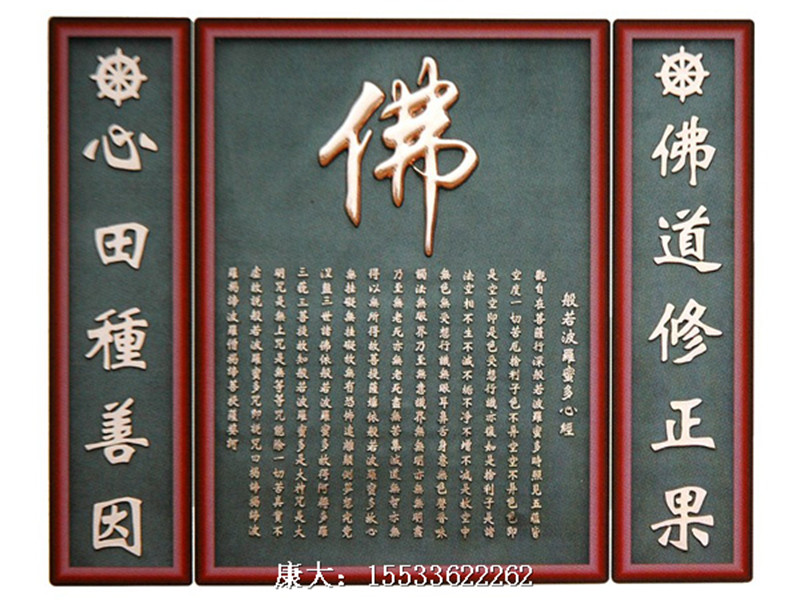 佛道修正果
佛
般若波羅蜜多心經
觀自在菩薩行深般若波羅蜜多時照見五蘊皆
空度一切苦厄捨利子色不異空空不異色色即
是空空即是色受想行識亦復如是捨利子是諸
法空相不生不滅不垢不淨不增不減是故空中
無色無受想行識無眼耳鼻舌身意無色聲香味
觸法無眼界乃至無意識界無無明亦無無明盡
乃至無老死亦無老死盡無苦集滅道無智亦無
得以無所得故菩提薩埵依般若波羅蜜多故心
無挂礙無挂礙故無有恐怖遠離顛倒夢想究竟
涅盤三世諸佛依般若波羅蜜多故得阿耨多羅
三藐三菩提故知般若波羅蜜多是大神咒是大
明咒是無上咒是無等等咒能除一切苦真實不
虛故說般若波羅蜜多咒即說咒曰揭諦揭諦波
羅揭諦波羅僧揭諦菩提薩婆訶
心田種善因
康大：15533622262